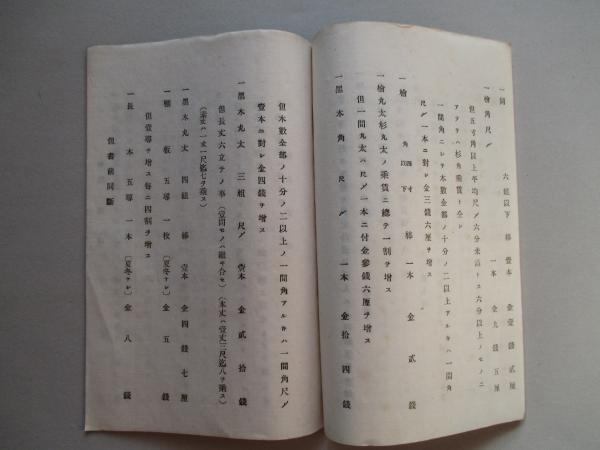 一同 六組以下 梯 壹本 金 壹 錢 貳 厘
一檜角尺〆 一本 金 九 錢 五 厘
但五寸角以上平均尺〆六分未滿トス六分以上ノモノニ
アリテハ杉角乘賃ト仝シ
一間角ニシテ木數金部ノ十分ノ二以上アルキハ一間角
尺〆一本ニ對シ金三錢六厘ヲ增ス
一檜 角四寸以下 梯 一本 金 貳 錢
一檜丸太杉丸太ノ乘賃ニ總テ一割ヲ增ス
但一間丸太ハ尺〆一本ニ付金參錢六厘ヲ增ス
一黑木角尺〆 一本 金 拾 四 錢
但木數金部ノ十分ノ二以上ノ一間角アルキハ一間角尺〆
壹本ニ對シ金四錢ヲ增ス
一黑木丸太 三組 尺〆 壹本 金 貳 拾 錢
但長丈六立テノ事
(本丈ハ壹丈三尺迄八ヲ乘ス)
(素丈ハ一丈一尺迄七ヲ乘ス)
一黑木丸太 四組 梯 壹本 金 四 錢 七 厘
一 板 五 尋 一 枚 (夏冬ナシ) 金 五 錢
但壹尋ヲ增ス每ニ四割ヲ增ス
一長 木 五 尋 一 本 (夏冬ナシ) 金 八 錢
但書前同斷